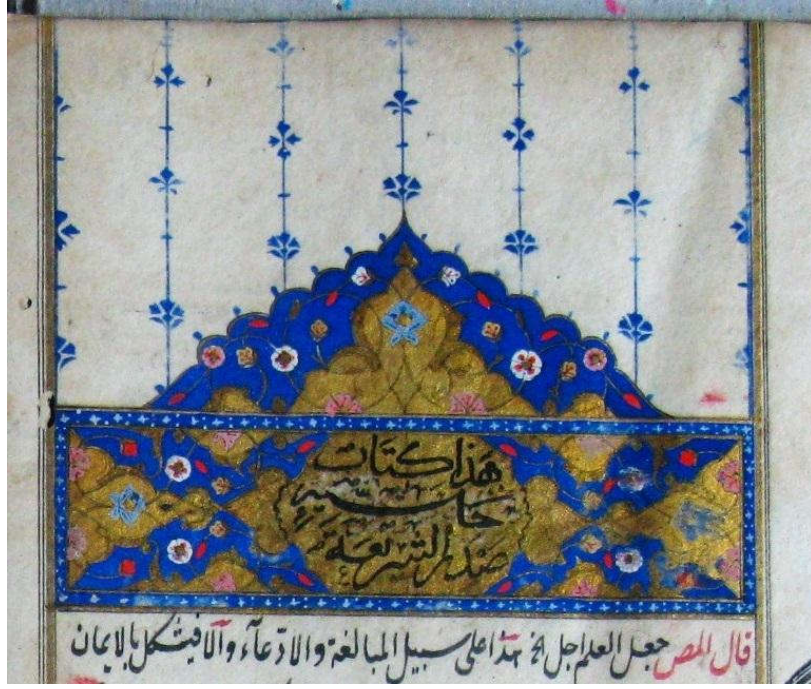 هذا كتاب
حاشيه
صدر الشريعة
قال المص جعل العلم اجل الخ هذا على سبيل المبالغة والادعآء والا فيشكل بالايمان